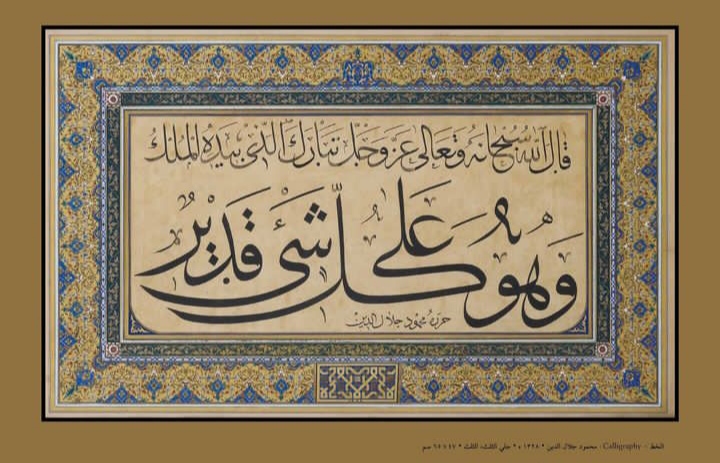 قَالَ اللهُ سُبْحَانَهُ وَتَعَالَى عَزَّ وَجَلَّ تَبَارَكَ الَّذِي بِيَدِهِ الْمُلْكُ
وَهُوَ عَلَى كُلِّ شَيْءٍ قَدِيرٌ
حرره محمود جلال الدين
الخط - Calligraphy : محمود جلال الدين * ١٣٢٨ ه * جلي الثلث، الثلث * ٤٧ × ٦٥ سم